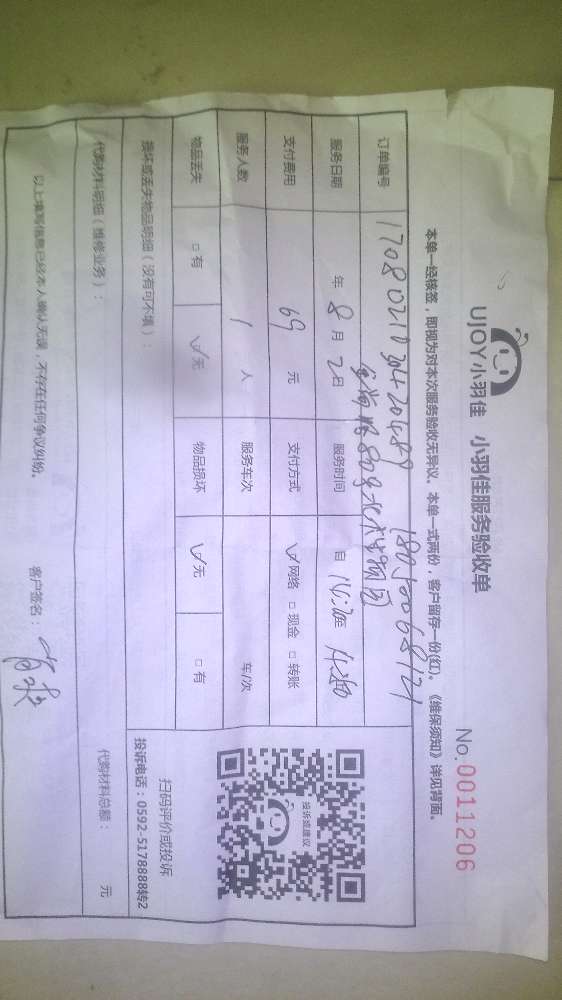 UJOY小羽佳 小羽佳服务验收单
No.0011206
本单一经续签，即视为对本次服务验收无异议。本单一式两份，客户留存一份(红)。《维保须知》详见背面。
订单编号 17080210304420489 18050068121
服务日期 年 8 月 2日 服务时间 自 14:20至
支付费用 69 元 支付方式 ☑网络 □现金 □转账
服务人数 1 人 服务车次 车/次
物品丢失 □有 ☑无 物品损坏 ☑无 □有
投诉或建议
扫码评价或投诉
投诉电话：0592-5178888转2
损坏或丢失物品明细（没有可不填）：
代购材料明细（维修业务）： 代购材料总额： 元
以上填写信息已经本人确认无误，不存在任何争议纠纷。 客户签名：